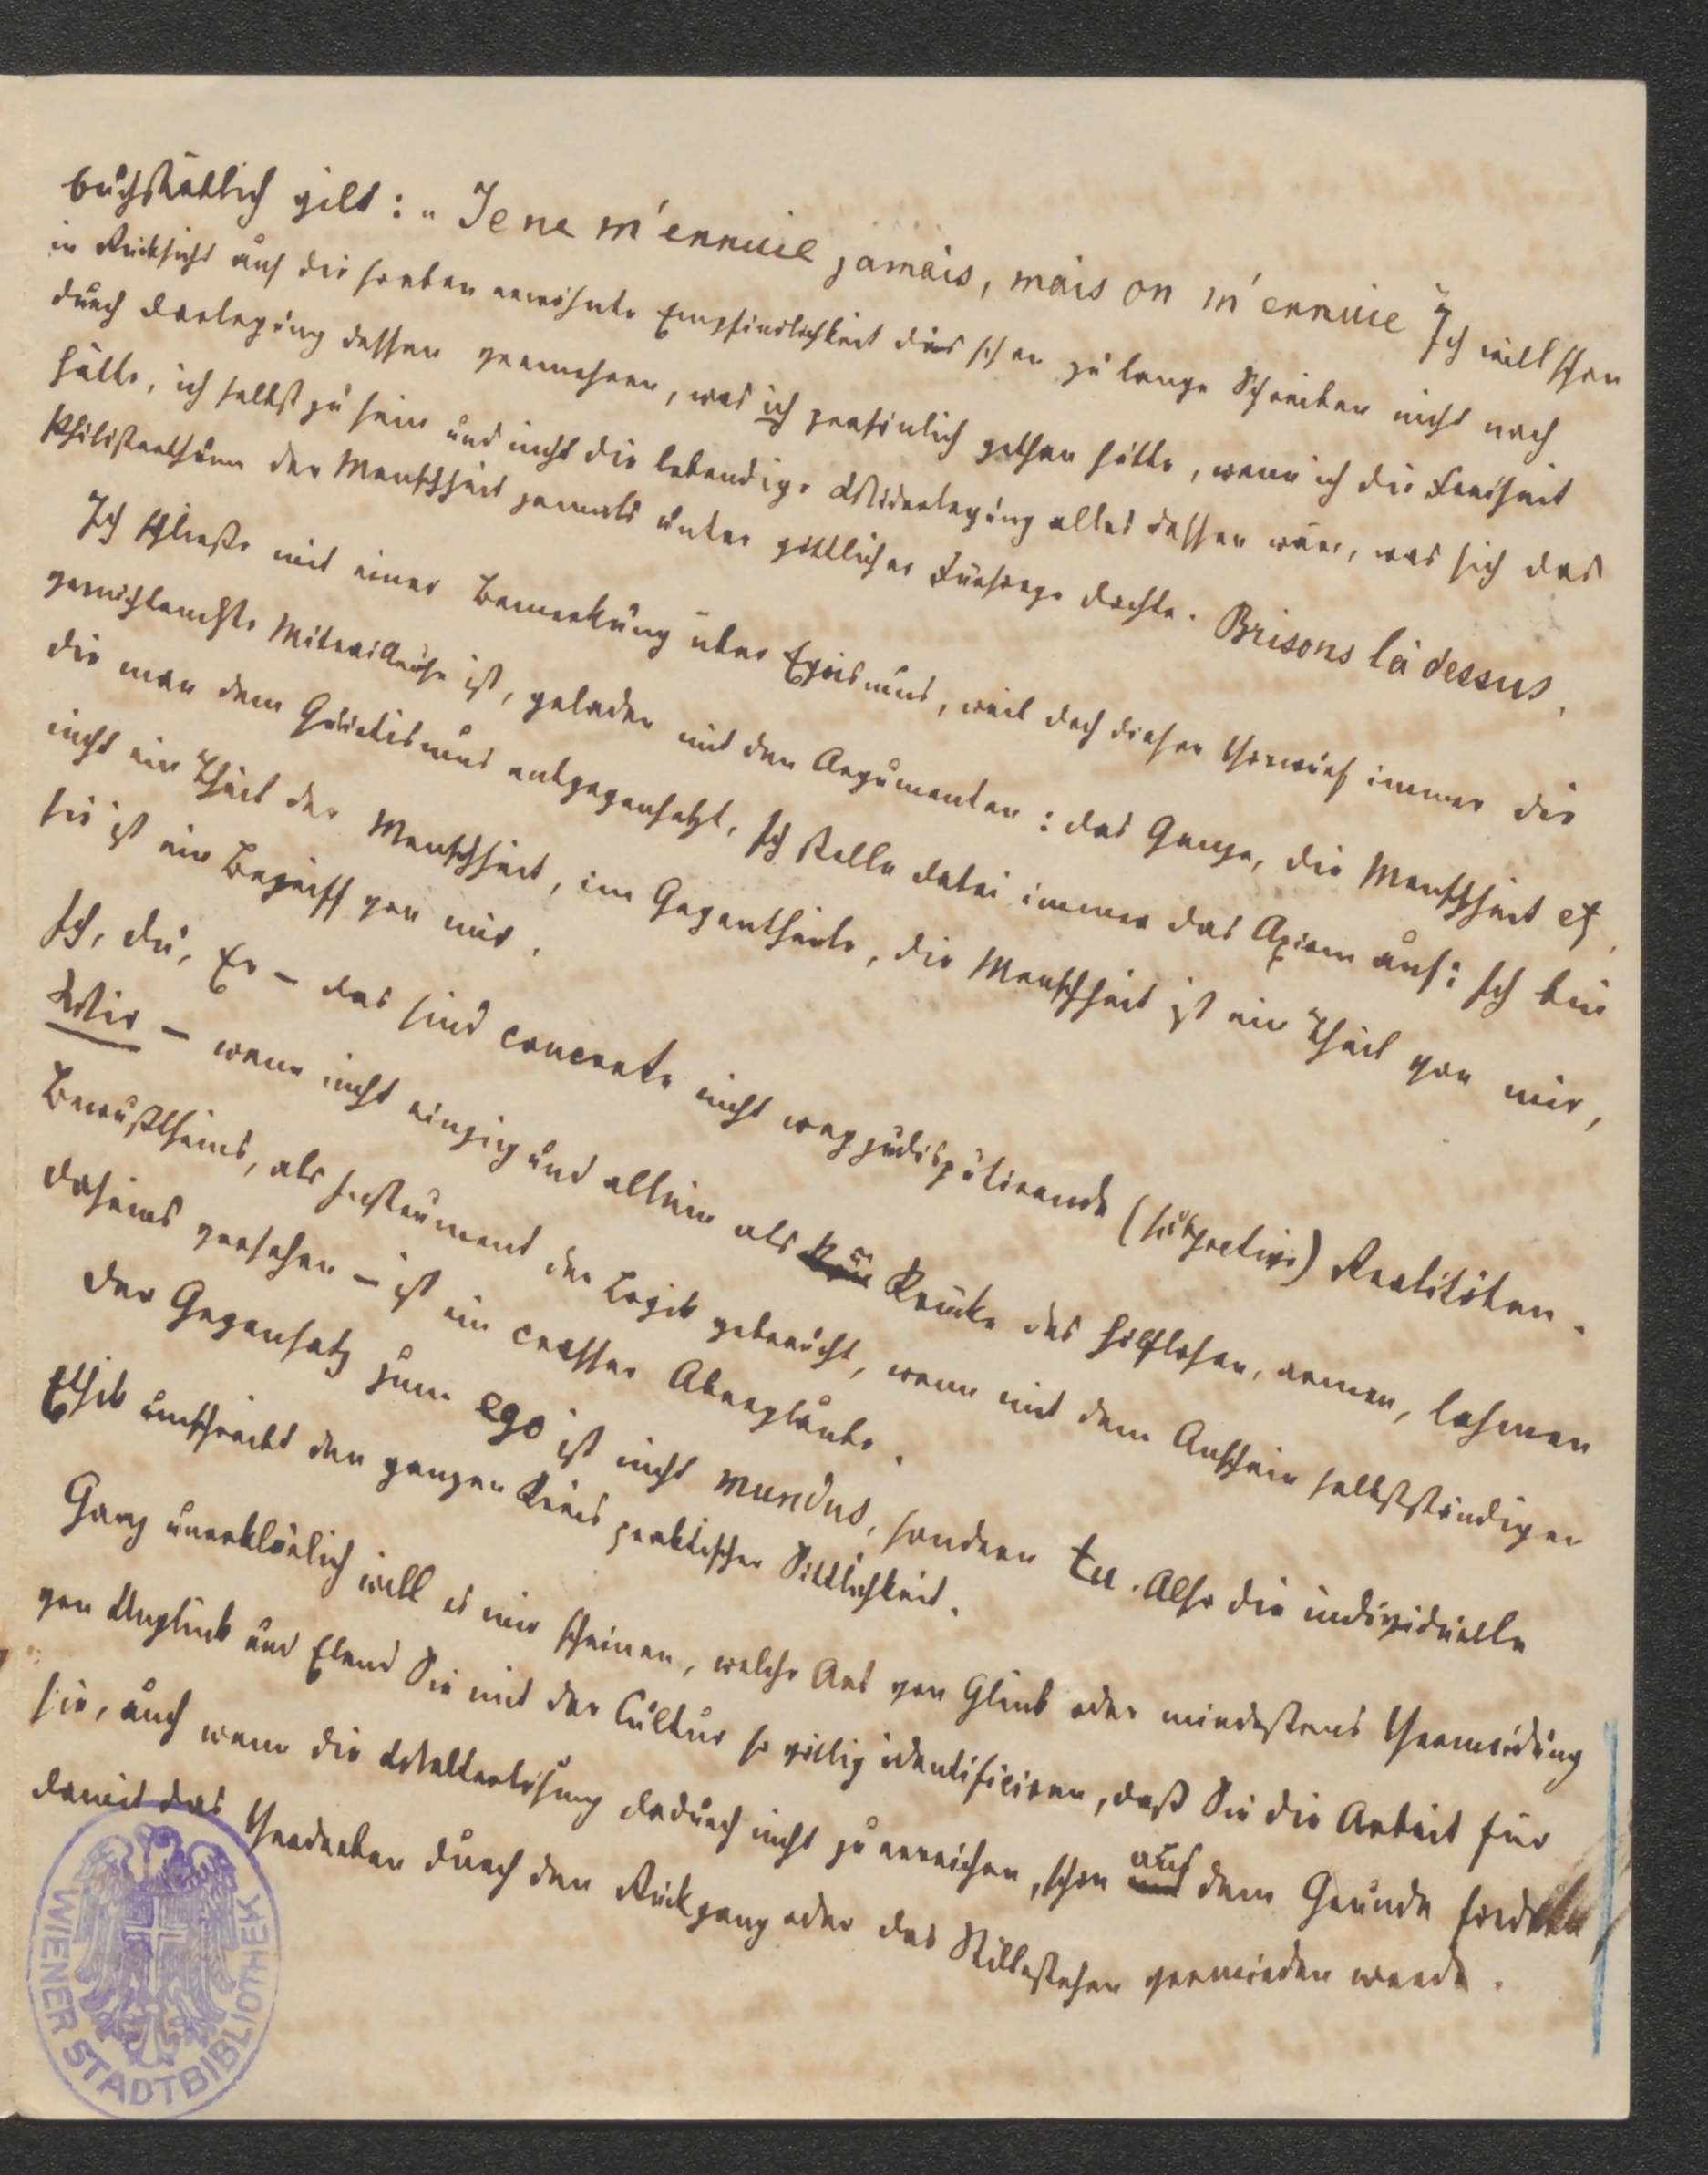 buchstäblich gilt: „Je ne m'ennuie jamais, mais on m'ennuie" Ich will schon
in Rücksicht auf die soeben erwähnte Empfindlichkeit dies schon zu lange Schreiben nicht noch
durch Darlegung dessen vermehren, was ich persönlich gethan hätte, wenn ich die Freiheit
hätte, ich selbst zu sein und nicht die lebendige Widerlegung alles dessen wäre, was sich das
Philisterthum der Menschheit jemals unter göttlicher Fürsorge dachte. Brisons là dessus.
Ich schließe mit einer Bemerkung über Egoismus, weil doch dieser Vorwurf immer die
gewichtendste Mitrailleuse ist, geladen mit den Argumenten: das Ganze, die Menschheit etz,
die man dem Quietismus entgegensetzt. Ich stelle dabei immer das Axiom auf: Ich bin
nicht ein Theil der Menschheit, im Gegentheile, die Menschheit ist ein Theil von mir,
sie ist ein Begriff von mir.
Ich, du, Er – das sind concrete nicht wegzudisputirende (subjective) Realitäten.
Wir – wenn nicht einzig und allein als Krücke des hilflosen, armen, lahmen
Bewußtseins, als Instrument der Logik gebraucht, wenn mit dem Anschein selbstständigen
Daseins versehen – ist ein crasser Aberglaube.
Der Gegensatz zum ego ist nicht mundus, sondern tu. Also die individuelle
Ethik umschreibt den ganzen Kreis praktischer Sittlichkeit.
Ganz unerklärlich will es mir scheinen, welche Art von Glück oder mindestens Vermeidung
von Unglück und Elend Sie mit der Cultur so völlig identificiren, daß Sie die Arbeit für
sie, auch wenn die Welterlösung dadurch nicht zu erreichen, schon auf dem Grunde fordern,
damit das Verderben durch den Rückgang oder das Stillestehen vermieden werde.
WIENER STADTBIBLIOTHEK